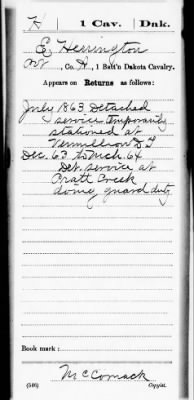 H | 1 Cav. | Dak.
E Herrington
Pvt, Co. A, 1 Batt'n Dakota Cavalry.
Appears on Returns as follows:
July 1863 Detached
service temporarily
stationed at
Vermillion D.T
Dec. 63 to Mch. 64
Det. service at
Pratt Creek
doing guard duty
Book mark:
McCormack
(546) Copyist.